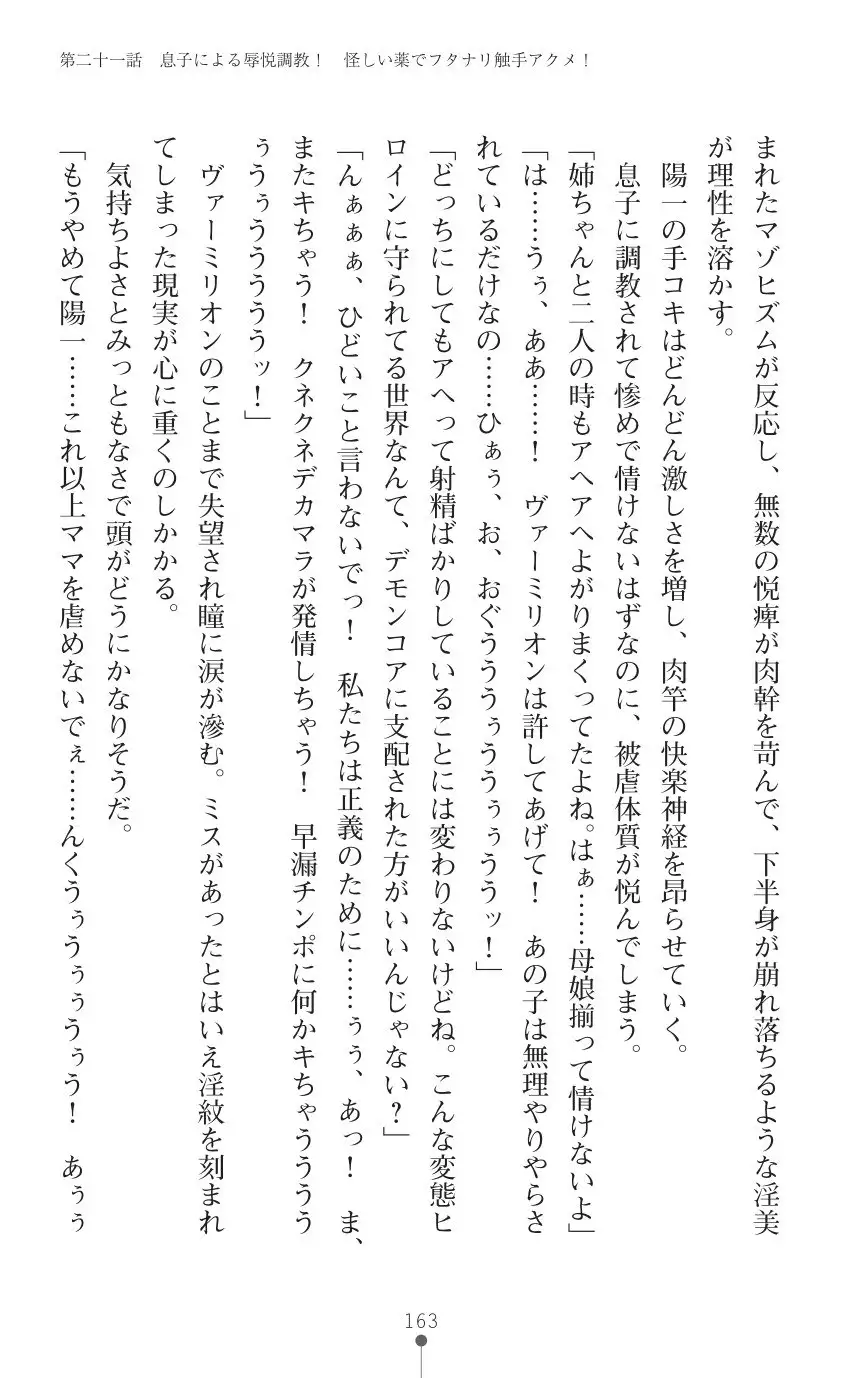 第二十一話　息子による辱悦調教！　怪しい薬でフタナリ触手アクメ！
まれたマゾヒズムが反応し、無数の悦痺が肉幹を苛んで、下半身が崩れ落ちるような淫美
が理性を溶かす。
　陽一の手コキはどんどん激しさを増し、肉竿の快楽神経を昂らせていく。
　息子に調教されて惨めで情けないはずなのに、被虐体質が悦んでしまう。
「姉ちゃんと二人の時もアヘアヘよがりまくってたよね。はぁ……母娘揃って情けないよ」
「は……うぅ、ああ……！　ヴァーミリオンは許してあげて！　あの子は無理やりやらさ
れているだけなの……ひぁぅ、お、おぐうううぅううぅぅううッ！」
「どっちにしてもアヘって射精ばかりしていることには変わりないけどね。こんな変態ヒ
ロインに守られてる世界なんて、デモンコアに支配された方がいいんじゃない？」
「んぁぁぁ、ひどいこと言わないでっ！　私たちは正義のために……ぅぅ、あっ！　ま、
またキちゃう！　クネクネデカマラが発情しちゃう！　早漏チンポに何かキちゃうううう
ぅうぅうううううッ！」
　ヴァーミリオンのことまで失望され瞳に涙が滲む。ミスがあったとはいえ淫紋を刻まれ
てしまった現実が心に重くのしかかる。
　気持ちよさとみっともなさで頭がどうにかなりそうだ。
「もうやめて陽一……これ以上ママを虐めないでぇ……んくうぅうぅぅうぅう！　あぅぅ
163